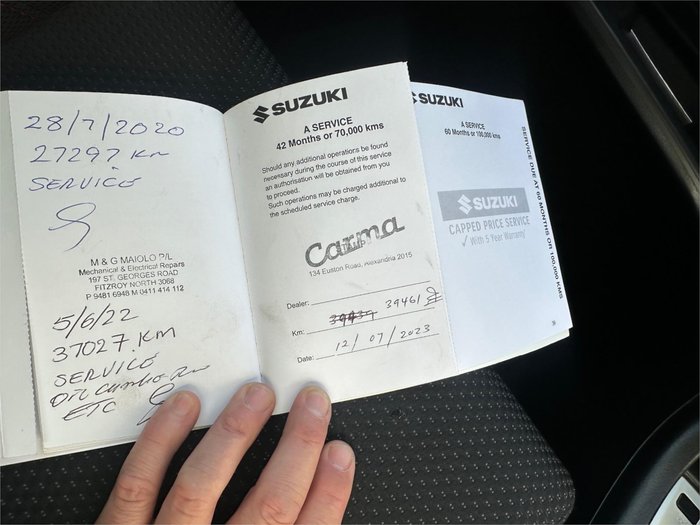 28/7/2020
27297 Km
SERVICE
M & G MAIOLO P/L
Mechanical & Electrical Repairs
197 ST. GEORGES ROAD
FITZROY NORTH 3068
P 9481 6948 M 0411 414 112
5/6/22
37027 KM
SERVICE
OIL
ETC
SUZUKI
A SERVICE
42 Months or 70,000 kms
Should any additional operations be found
necessary during the course of this service
an authorisation will be obtained from you
to proceed.
Such operations may be charged additional to
the scheduled service charge.
Carma
STAMP
134 Euston Road, Alexandria 2015
Dealer:
Km: 39461
Date: 12/07/2023
SUZUKI
A SERVICE
60 Months or 100,000 kms
SUZUKI
CAPPED PRICE SERVICE
✓ With 5 Year Warranty
SERVICE DUE AT 60 MONTHS OR 100,000 KMS